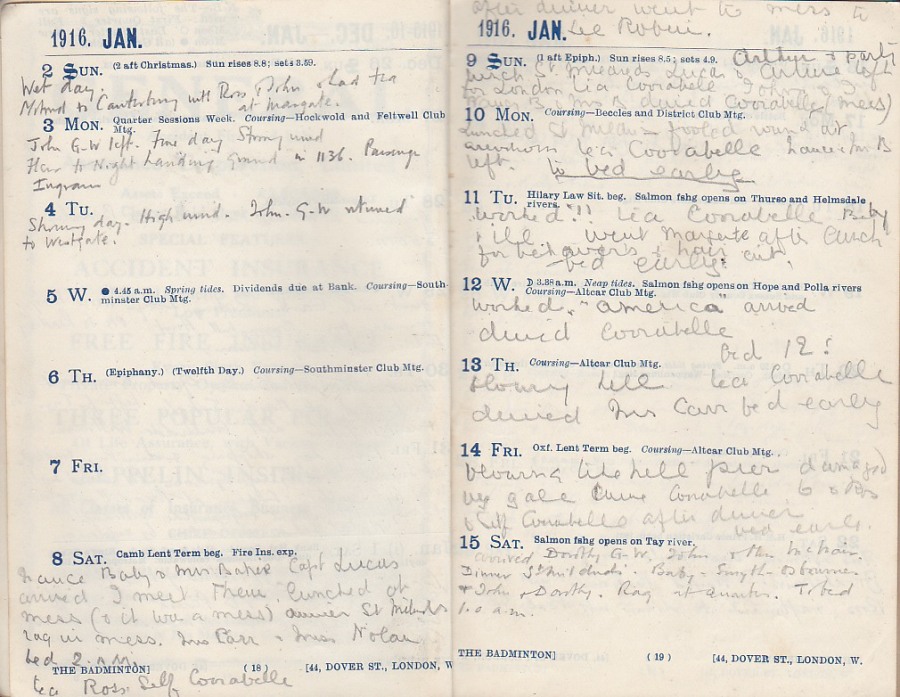 1916. JAN.
2 SUN. (2 aft Christmas.) Sun rises 8.8; sets 3.59.
Wet day.
Motored to Canterbury with Ross & John & had tea
at Margate.
3 MON. Quarter Sessions Week. Coursing—Hockwold and Feltwell Club
Mtg.
John G-W left. Fine day Strong wind
Flew to Night Landing Ground in 1136. Passenger
Ingram
4 TU.
Showery day. High wind. John. G-W returned
to Westgate.
5 W. ● 4.45 a.m. Spring tides. Dividends due at Bank. Coursing—South-
minster Club Mtg.
6 TH. (Epiphany.) (Twelfth Day.) Coursing—Southminster Club Mtg.
7 FRI.
8 SAT. Camb Lent Term beg. Fire Ins. exp.
Baby & Mrs Baker Capt Lucas
arrived I meet them. lunched at
mess (& it was a mess) dinner St Mildreds
rag in mess. Mrs Carr & Miss Nolan
bed 2. a.m.
THE BADMINTON] (18) [44, DOVER ST., LONDON, W
tea Ross Self Coorabelle
after dinner went to mess to
1916. JAN.
Robin.
9 SUN. (1 aft Epiph.) Sun rises 8.5; sets 4.9. Arthur & party
lunch St Mildreds Lucas & Arthur left
for London tea Coorabelle John & I
B Mrs B dined Coorabelle (mess)
10 MON. Coursing—Beccles and District Club Mtg.
lunched St Mildreds fooled round air
tea Coorabelle & Mrs B
left. to bed early
11 TU. Hilary Law Sit. beg. Salmon fshg opens on Thurso and Helmsdale
rivers.
worked!!! tea Coorabelle Baby
ill. went Margate after lunch
for & hair cut.
bed early.
12 W. ☽ 3.38 a.m. Neap tides. Salmon fshg opens on Hope and Polla rivers
Coursing—Altcar Club Mtg.
worked. "America" arrived
dined Coorabelle
bed 12!
13 TH. Coursing—Altcar Club Mtg.
Blowing hell tea Coorabelle
dined Mrs Carr bed early
14 FRI. Oxf. Lent Term beg. Coursing—Altcar Club Mtg.
blowing like hell pier damaged
by gale Coorabelle & Ross
& Self Coorabelle after dinner
bed early.
15 SAT. Salmon fshg opens on Tay river.
arrived Dorothy G-W. John & Mrs
Dinner St Mildreds. Baby - Smyth-Osbourne
& John & Dorothy. Rag at Quarters. To bed
1.0 a.m.
THE BADMINTON] (19) [44, DOVER ST., LONDON, W.